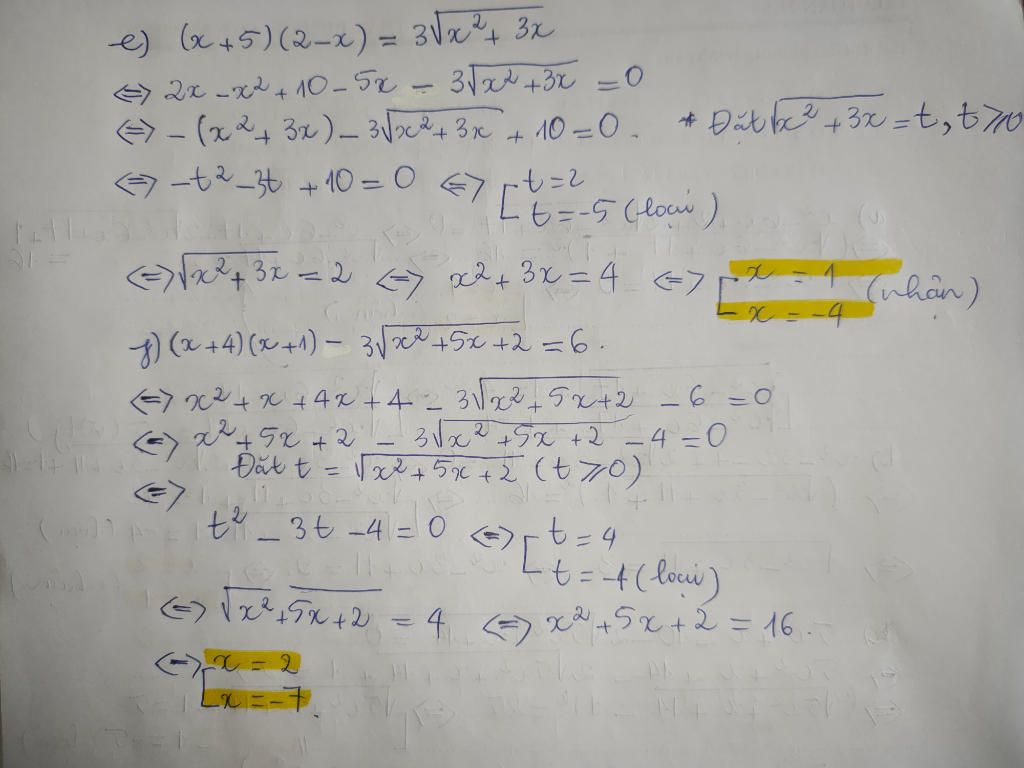 e) (x+5)(2-x) = 3√(x²+3x)
⇔ 2x - x² + 10 - 5x - 3√(x²+3x) = 0
⇔ -(x²+3x) - 3√(x²+3x) + 10 = 0. * Đặt √(x²+3x) = t, t ≥ 0
⇔ -t² - 3t + 10 = 0 ⇔ [ t = 2
t = -5 (loại)
⇔ √(x²+3x) = 2 ⇔ x² + 3x = 4 ⇔ [ x = 1
x = -4 (nhận)
f) (x+4)(x+1) - 3√(x²+5x+2) = 6.
⇔ x² + x + 4x + 4 - 3√(x²+5x+2) - 6 = 0
⇔ x² + 5x + 2 - 3√(x²+5x+2) - 4 = 0
Đặt t = √(x²+5x+2) (t ≥ 0)
⇔
t² - 3t - 4 = 0 ⇔ [ t = 4
t = -1 (loại)
⇔ √(x²+5x+2) = 4 ⇔ x² + 5x + 2 = 16.
⇔ [ x = 2
x = -7.